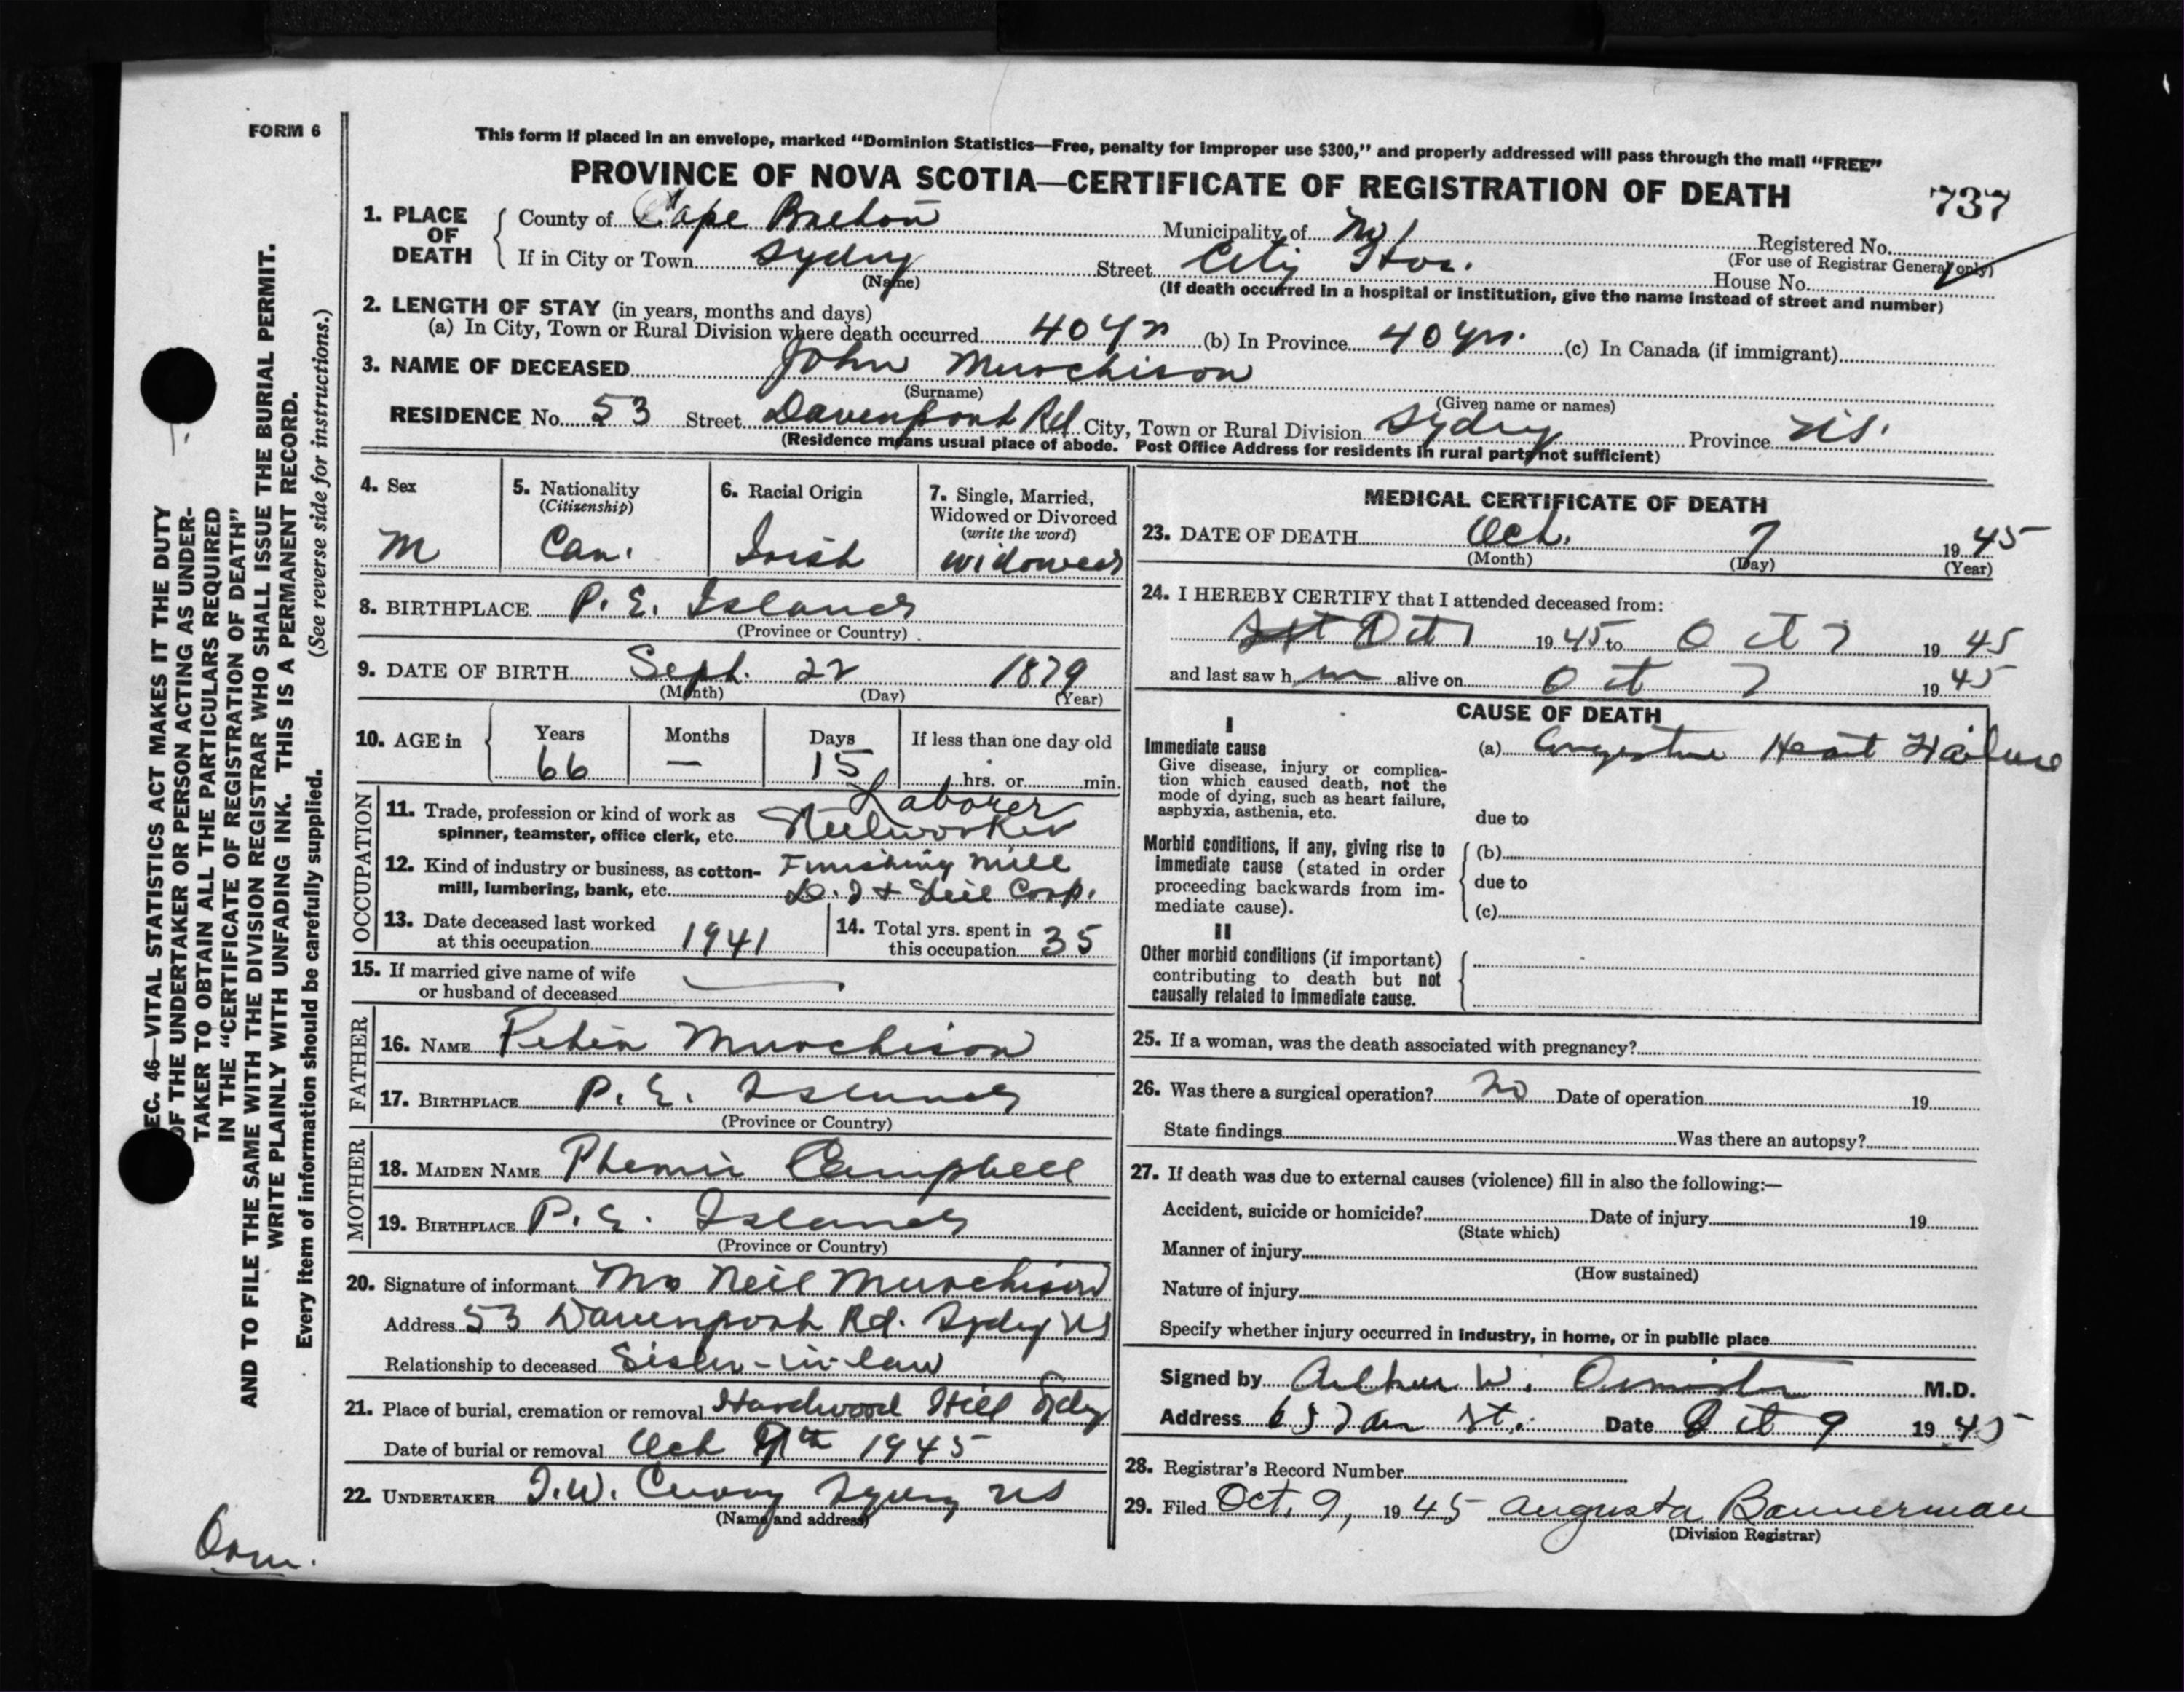 FORM 6
This form if placed in an envelope, marked "Dominion Statistics—Free, penalty for improper use $300," and properly addressed will pass through the mail "FREE"
PROVINCE OF NOVA SCOTIA—CERTIFICATE OF REGISTRATION OF DEATH 737
1. PLACE OF DEATH
County of Cape Breton Municipality of Registered No.
(For use of Registrar General only)
If in City or Town Sydney Street City Hos. House No.
(Name) (If death occurred in a hospital or institution, give the name instead of street and number)
2. LENGTH OF STAY (in years, months and days)
(a) In City, Town or Rural Division where death occurred 40 yr (b) In Province 40 yrs. (c) In Canada (if immigrant)
3. NAME OF DECEASED John Murchison
(Surname) (Given name or names)
RESIDENCE No. 53 Street Davenport Rd City, Town or Rural Division Sydney Province N.S.
(Residence means usual place of abode. Post Office Address for residents in rural parts not sufficient)
4. Sex
M
5. Nationality
(Citizenship)
Can.
6. Racial Origin
Irish
7. Single, Married,
Widowed or Divorced
(write the word)
widowed
8. BIRTHPLACE P. E. Island
(Province or Country)
9. DATE OF BIRTH Sept. 22 1879
(Month) (Day) (Year)
10. AGE in
Years Months Days If less than one day old
66 — 15 hrs. or min.
OCCUPATION
Laborer
11. Trade, profession or kind of work as
spinner, teamster, office clerk, etc. Steelworker
12. Kind of industry or business, as cotton- Finishing Mill
mill, lumbering, bank, etc. D. I & Steel Corp.
13. Date deceased last worked
at this occupation 1941
14. Total yrs. spent in
this occupation 35
15. If married give name of wife
or husband of deceased —
FATHER
16. NAME Peter Murchison
17. BIRTHPLACE P. E. Island
(Province or Country)
MOTHER
18. MAIDEN NAME Phemie Campbell
19. BIRTHPLACE P. E. Island
(Province or Country)
20. Signature of informant Mrs Neil Murchison
Address 53 Davenport Rd. Sydney NS
Relationship to deceased Sister-in-law
21. Place of burial, cremation or removal Hardwood Hill Sydney
Date of burial or removal Oct 9th 1945
22. UNDERTAKER T.W. Curry Sydney NS
(Name and address)
MEDICAL CERTIFICATE OF DEATH
23. DATE OF DEATH Oct. 7 1945
(Month) (Day) (Year)
24. I HEREBY CERTIFY that I attended deceased from:
Oct 1 1945 to Oct 7 1945
and last saw him alive on Oct 7 1945
CAUSE OF DEATH
I
Immediate cause (a) Congestive Heart Failure
Give disease, injury or complica-
tion which caused death, not the
mode of dying, such as heart failure,
asphyxia, asthenia, etc.
due to
Morbid conditions, if any, giving rise to
immediate cause (stated in order
proceeding backwards from im-
mediate cause).
(b)
due to
(c)
II
Other morbid conditions (if important)
contributing to death but not
causally related to immediate cause.
25. If a woman, was the death associated with pregnancy?
26. Was there a surgical operation? No Date of operation 19
State findings Was there an autopsy?
27. If death was due to external causes (violence) fill in also the following:—
Accident, suicide or homicide? Date of injury 19
(State which)
Manner of injury
(How sustained)
Nature of injury
Specify whether injury occurred in industry, in home, or in public place
Signed by Arthur W. Ormiston M.D.
Address St. Date Oct 9 1945
28. Registrar's Record Number
29. Filed Oct. 9, 1945 Augusta Bannerman
(Division Registrar)
SEC. 46—VITAL STATISTICS ACT MAKES IT THE DUTY
OF THE UNDERTAKER OR PERSON ACTING AS UNDER-
TAKER TO OBTAIN ALL THE PARTICULARS REQUIRED
IN THE "CERTIFICATE OF REGISTRATION OF DEATH"
AND TO FILE THE SAME WITH THE DIVISION REGISTRAR WHO SHALL ISSUE THE BURIAL PERMIT.
WRITE PLAINLY WITH UNFADING INK. THIS IS A PERMANENT RECORD.
Every item of information should be carefully supplied. (See reverse side for instructions.)